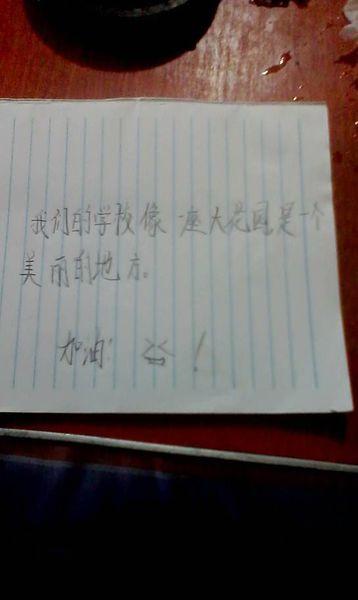 我们的学校像一座大花园是一个
美丽的地方。
加油: !